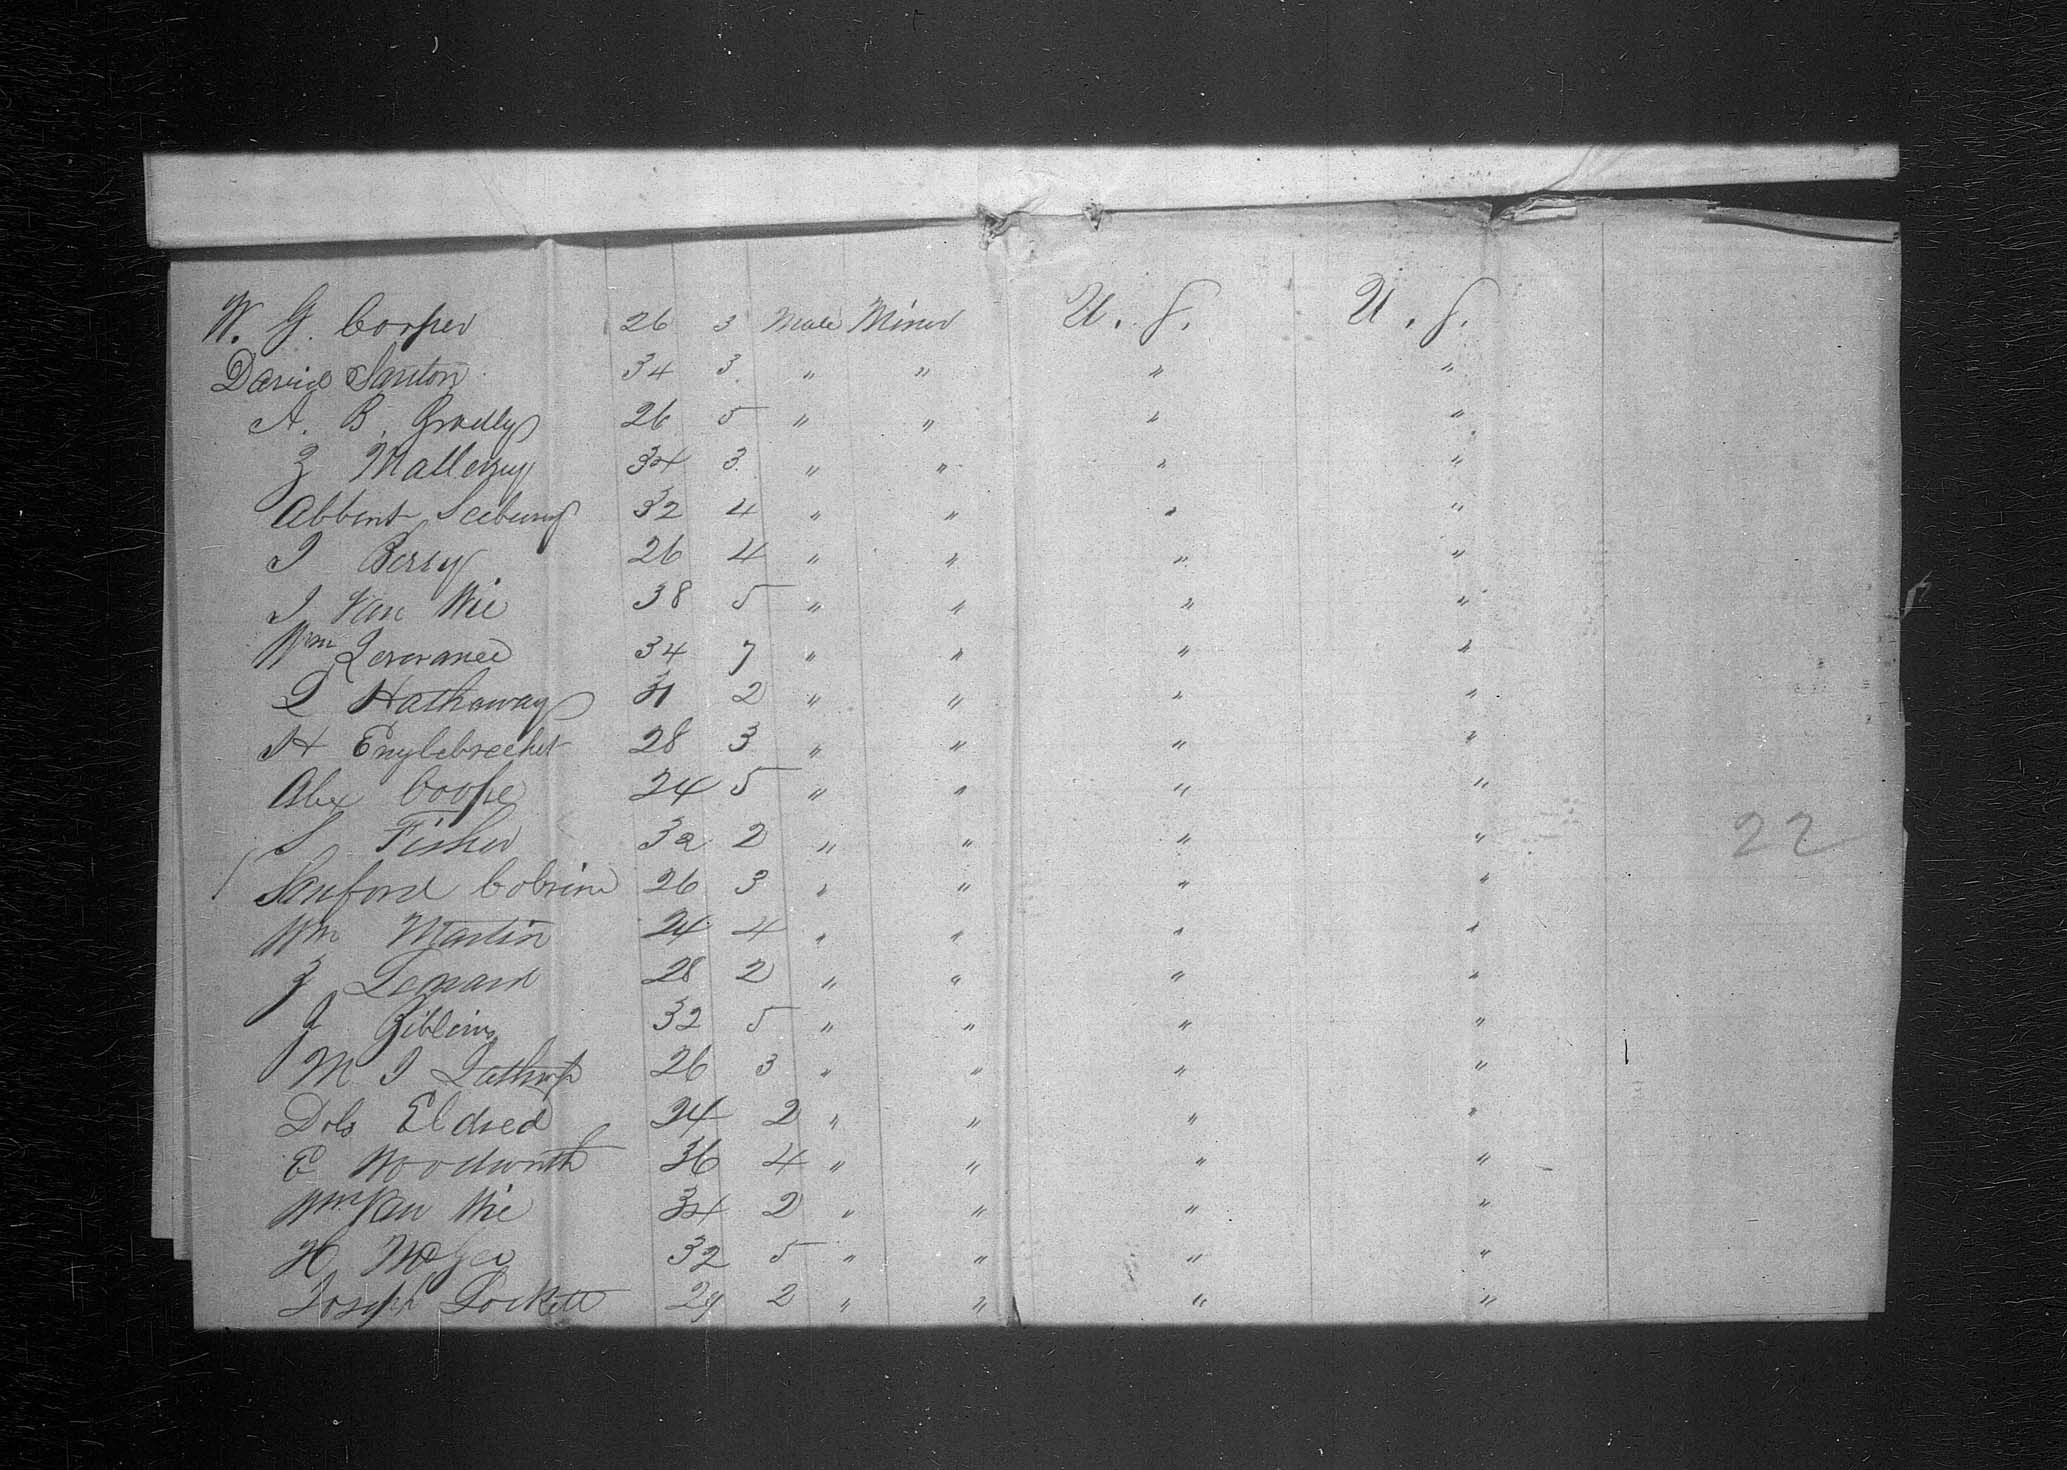 W. G. Cooper 26 3 Male Miner U. S. U. S.
David Santon 34 3 " " " "
A. B. Gradly 26 5 " " " "
Z Mallery 34 3 " " " "
Abbint Seebury 32 4 " " " "
I Berry 26 4 " " " "
I Van Wie 38 5 " " " "
Wm Lerwanee 34 7 " " " "
L Hathaway 31 2 " " " "
H Englebrechet 28 3 " " " "
Alex Coope 24 5 " " " "
S Fisher 32 2 " " " "
22
Sanford Cobrine 26 3 " " " "
Wm Martin 24 4 " " " "
J Lenard 28 2 " " " "
J Giblins 32 5 " " " "
M I Lathrop 26 3 " " " "
Dols Eldred 24 2 " " " "
E Woodworth 36 4 " " " "
Wm Van Wie 34 2 " " " "
H 32 5 " " " "
Joseph Lockett 29 2 " " " "